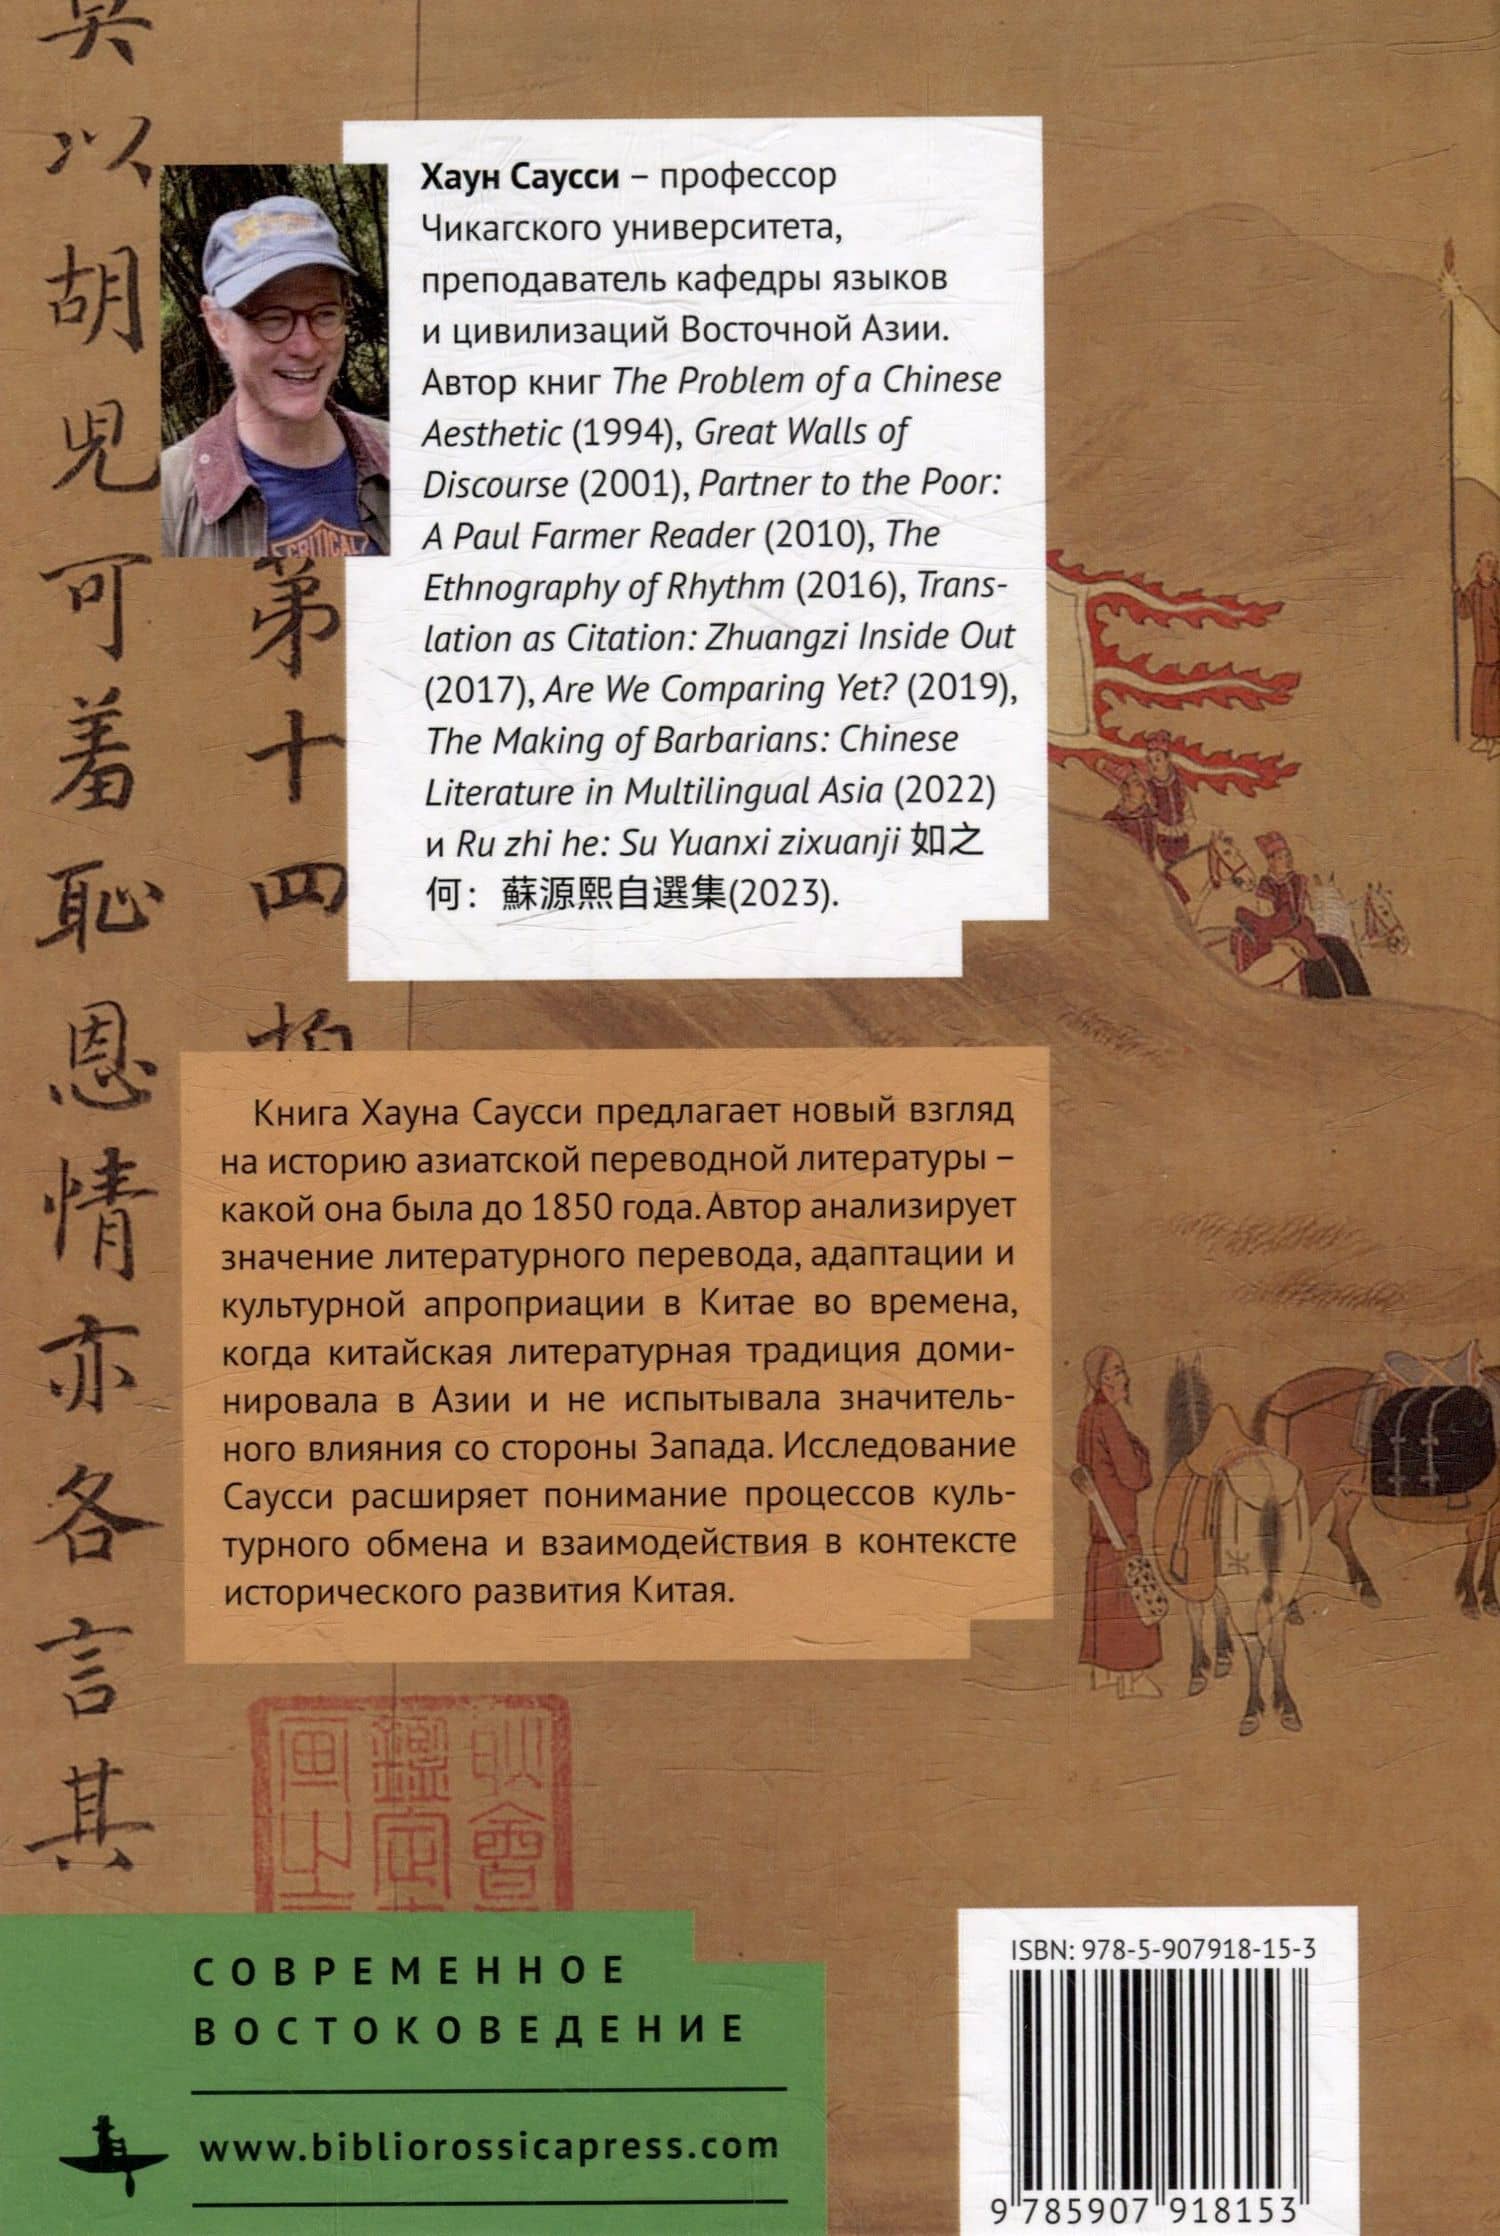 Хаун Саусси – профессор
Чикагского университета,
преподаватель кафедры языков
и цивилизаций Восточной Азии.
Автор книг The Problem of a Chinese
Aesthetic (1994), Great Walls of
Discourse (2001), Partner to the Poor:
A Paul Farmer Reader (2010), The
Ethnography of Rhythm (2016), Trans-
lation as Citation: Zhuangzi Inside Out
(2017), Are We Comparing Yet? (2019),
The Making of Barbarians: Chinese
Literature in Multilingual Asia (2022)
и Ru zhi he: Su Yuanxi zixuanji 如之
何：蘇源熙自選集(2023).
CRITICAL
第十四拍
以胡兒可羞恥恩情亦各言其
Книга Хауна Саусси предлагает новый взгляд
на историю азиатской переводной литературы –
какой она была до 1850 года. Автор анализирует
значение литературного перевода, адаптации и
культурной апроприации в Китае во времена,
когда китайская литературная традиция доми-
нировала в Азии и не испытывала значитель-
ного влияния со стороны Запада. Исследование
Саусси расширяет понимание процессов куль-
турного обмена и взаимодействия в контексте
исторического развития Китая.
СОВРЕМЕННОЕ
ВОСТОКОВЕДЕНИЕ
www.bibliorossicapress.com
ISBN: 978-5-907918-15-3
9 785907 918153